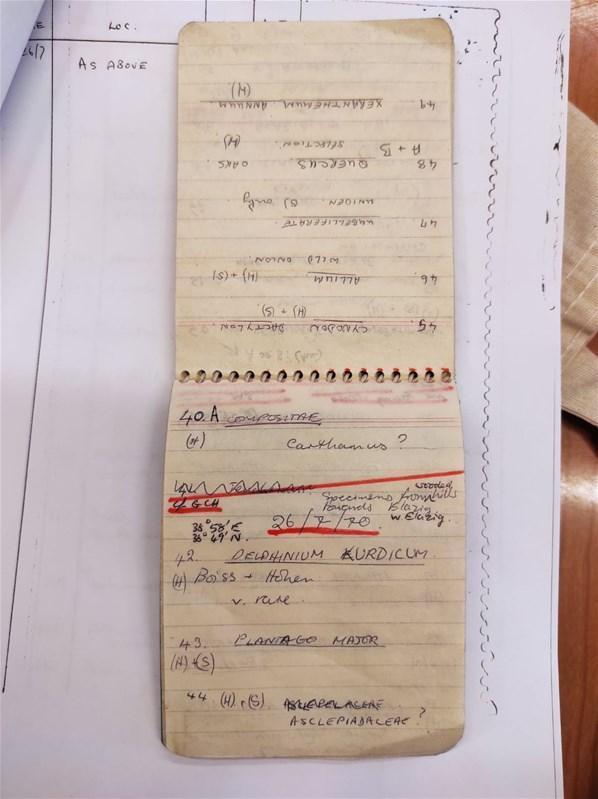 LOC.
26/7
AS ABOVE
40.A COMPOSITAE
(H) Carthamus?
c/ GCH
wooded
Specimens from hills
towards Elazig
W. Elazig.
38° 58' E
38° 49' N.
26/7/70
42. DELPHINIUM KURDICUM.
(H) Boiss + Hohen
v. rare.
43. PLANTAGO MAJOR
(H) + (S)
44 (H) + (S)
ASCLEPIADACEAE?
45 CYNODON DACTYLON.
(H) + (S)
46. ALLIUM (H) + (S)
WILD ONION
47 UMBELLIFERATE.
UNIDEN. (S) only.
48 QUERCUS. OAKS
A + B SELECTION. (H)
49 XERANTHEMUM ANNUUM
(H)